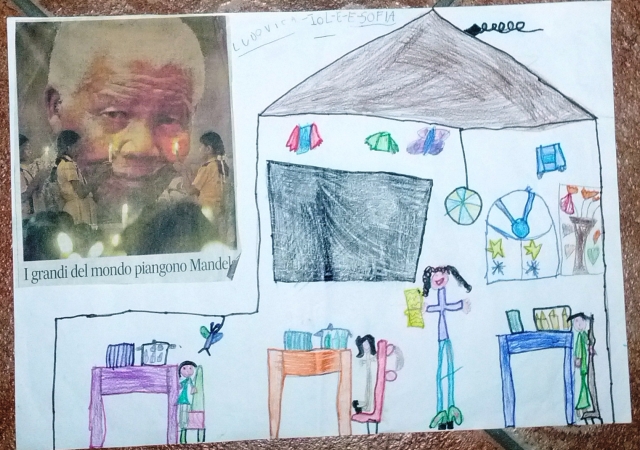 LUDOVICA-IOLE-E-SOFIA
I grandi del mondo piangono Mandel